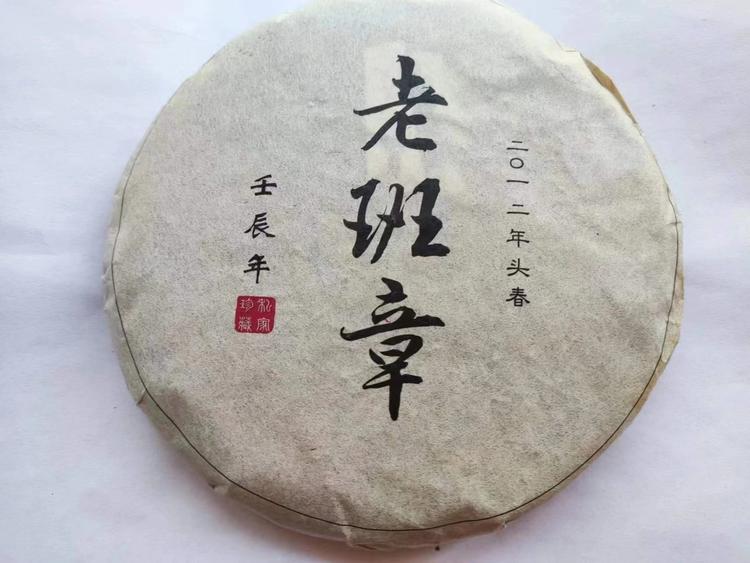 二〇一二年头春
老班章
壬辰年
私家
珍藏